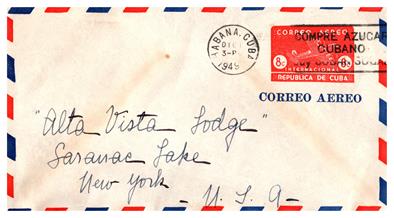 HABANA, CUBA
DIC
3-P
1949
CORREO AEREO
8c 8c
INTERNACIONAL
REPUBLICA DE CUBA
COMPRE AZUCAR
CUBANO
BUY CUBAN SUGAR
CORREO AEREO
"Alta Vista Lodge"
Saranac Lake
New York
U.S.A-